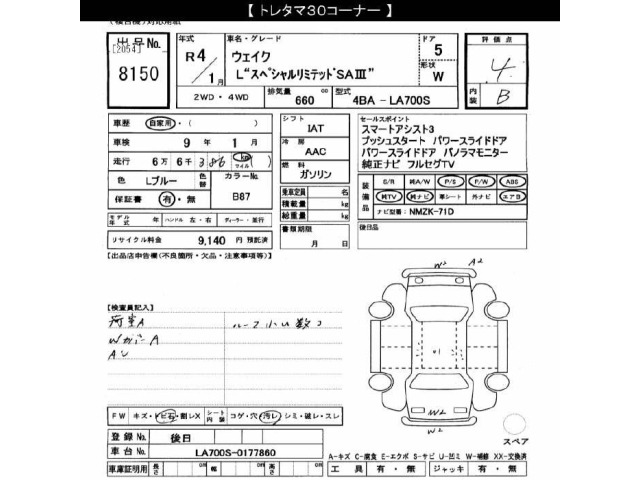 【 トレタマ30コーナー 】
(検台機)対応用紙
出品No.
[2054]
8150
年式
R 4
1月
車名・グレード
ウェイク
L“スペシャルリミテッドSAⅢ”
ドア
5
形状
W
評価点
4
内装
B
2WD・4WD
排気量
660 cc
型式
4BA - LA700S
車歴
自家用・( )
車検
9 年 1 月
走行
6 万 6 千 386 km マイル ( )
色
Lブルー
色替
カラーNo.
B87
保証書
有・無
シフト
IAT
冷房
AAC
燃料
ガソリン
乗車定員 名
積載量 kg
総重量 kg
書類期限
月 日
セールスポイント
スマートアシスト3
プッシュスタート パワースライドドア
パワースライドドア パノラマモニター
純正ナビ フルセグTV
装備品
S/R 純A/W P/S P/W ABS
MTV 純ナビ 革シート 外ナビ エアB
ナビ型番: NMZK-71D
モデル年式 年
ハンドル 左・右
ディーラー・並行
リサイクル料金 9,140 円 預託済
後日品
【出品店申告欄(不良箇所・欠品・注意事項等)】
W2 A2
【検査員記入】
荷室A
ルーフ小U数コ
AU
U1
W2
W2
FW キズ・トビ石・割レX シート内装 コゲ・穴・汚レ・シミ・破レ・スレ
スペア
登録No. 後日
車台No. LA700S-0177860
A-キズ C-腐食 E-エクボ S-サビ U-凹ミ W-補修 XX-交換済
車庫証明用 長さ cm 幅 cm 高さ cm
工具 有・無 ジャッキ 有・無